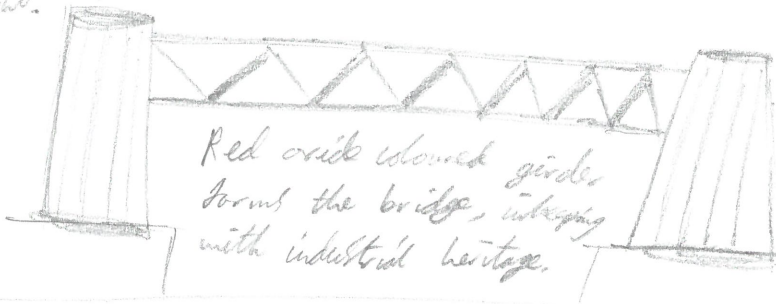 Red oxide coloured girder
forms the bridge, in keeping
with industrial heritage.